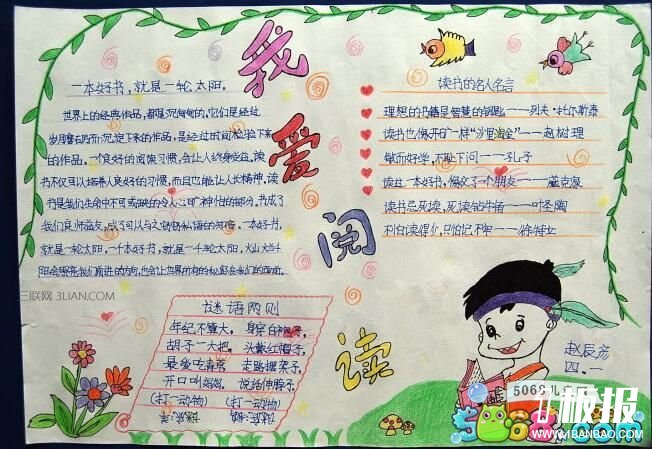 我爱阅读
一本好书，就是一轮太阳。
世界上的经典作品，都是沉甸甸的，它们是经过
岁月磨石乃而沉淀下来的作品，是经过时间检验下来
的作品。一个良好的阅读习惯，会让人终身受益，读
书不仅可以培养人良好的习惯，而且也能让人长精神，读
书是我们生命中不可或缺的令人心旷神怡的部分，书成了
我们良师益友，成了可以与之
一本好书，
就是一轮太阳，一千本好书，就是一千轮太阳，火山大
阳会照亮我们前进的方向，也会让世界所有的秘密在我们的面前。
读书的名人名言
理想的书籍是智慧的钥匙——列夫·托尔斯泰
读书也像开矿一样"沙里淘金"——赵树理
敏而好学，不耻下问——孔子
读过一本好书，像交了一个朋友——臧克家
读书忌死读，死读钻牛角——叶圣陶
不怕读得少，只怕记不牢——徐特立
谜语两则
年纪不算大， 身穿白袍子，
胡子一大把， 头戴红帽子，
最爱吃青草， 走路摆架子，
开口叫妈妈， 说话伸脖子，
(打一动物) (打一动物)
赵辰彦
四、一
三联网 3LIAN.COM
5068儿
5068.com
极报
WWW.1BANBAO.COM